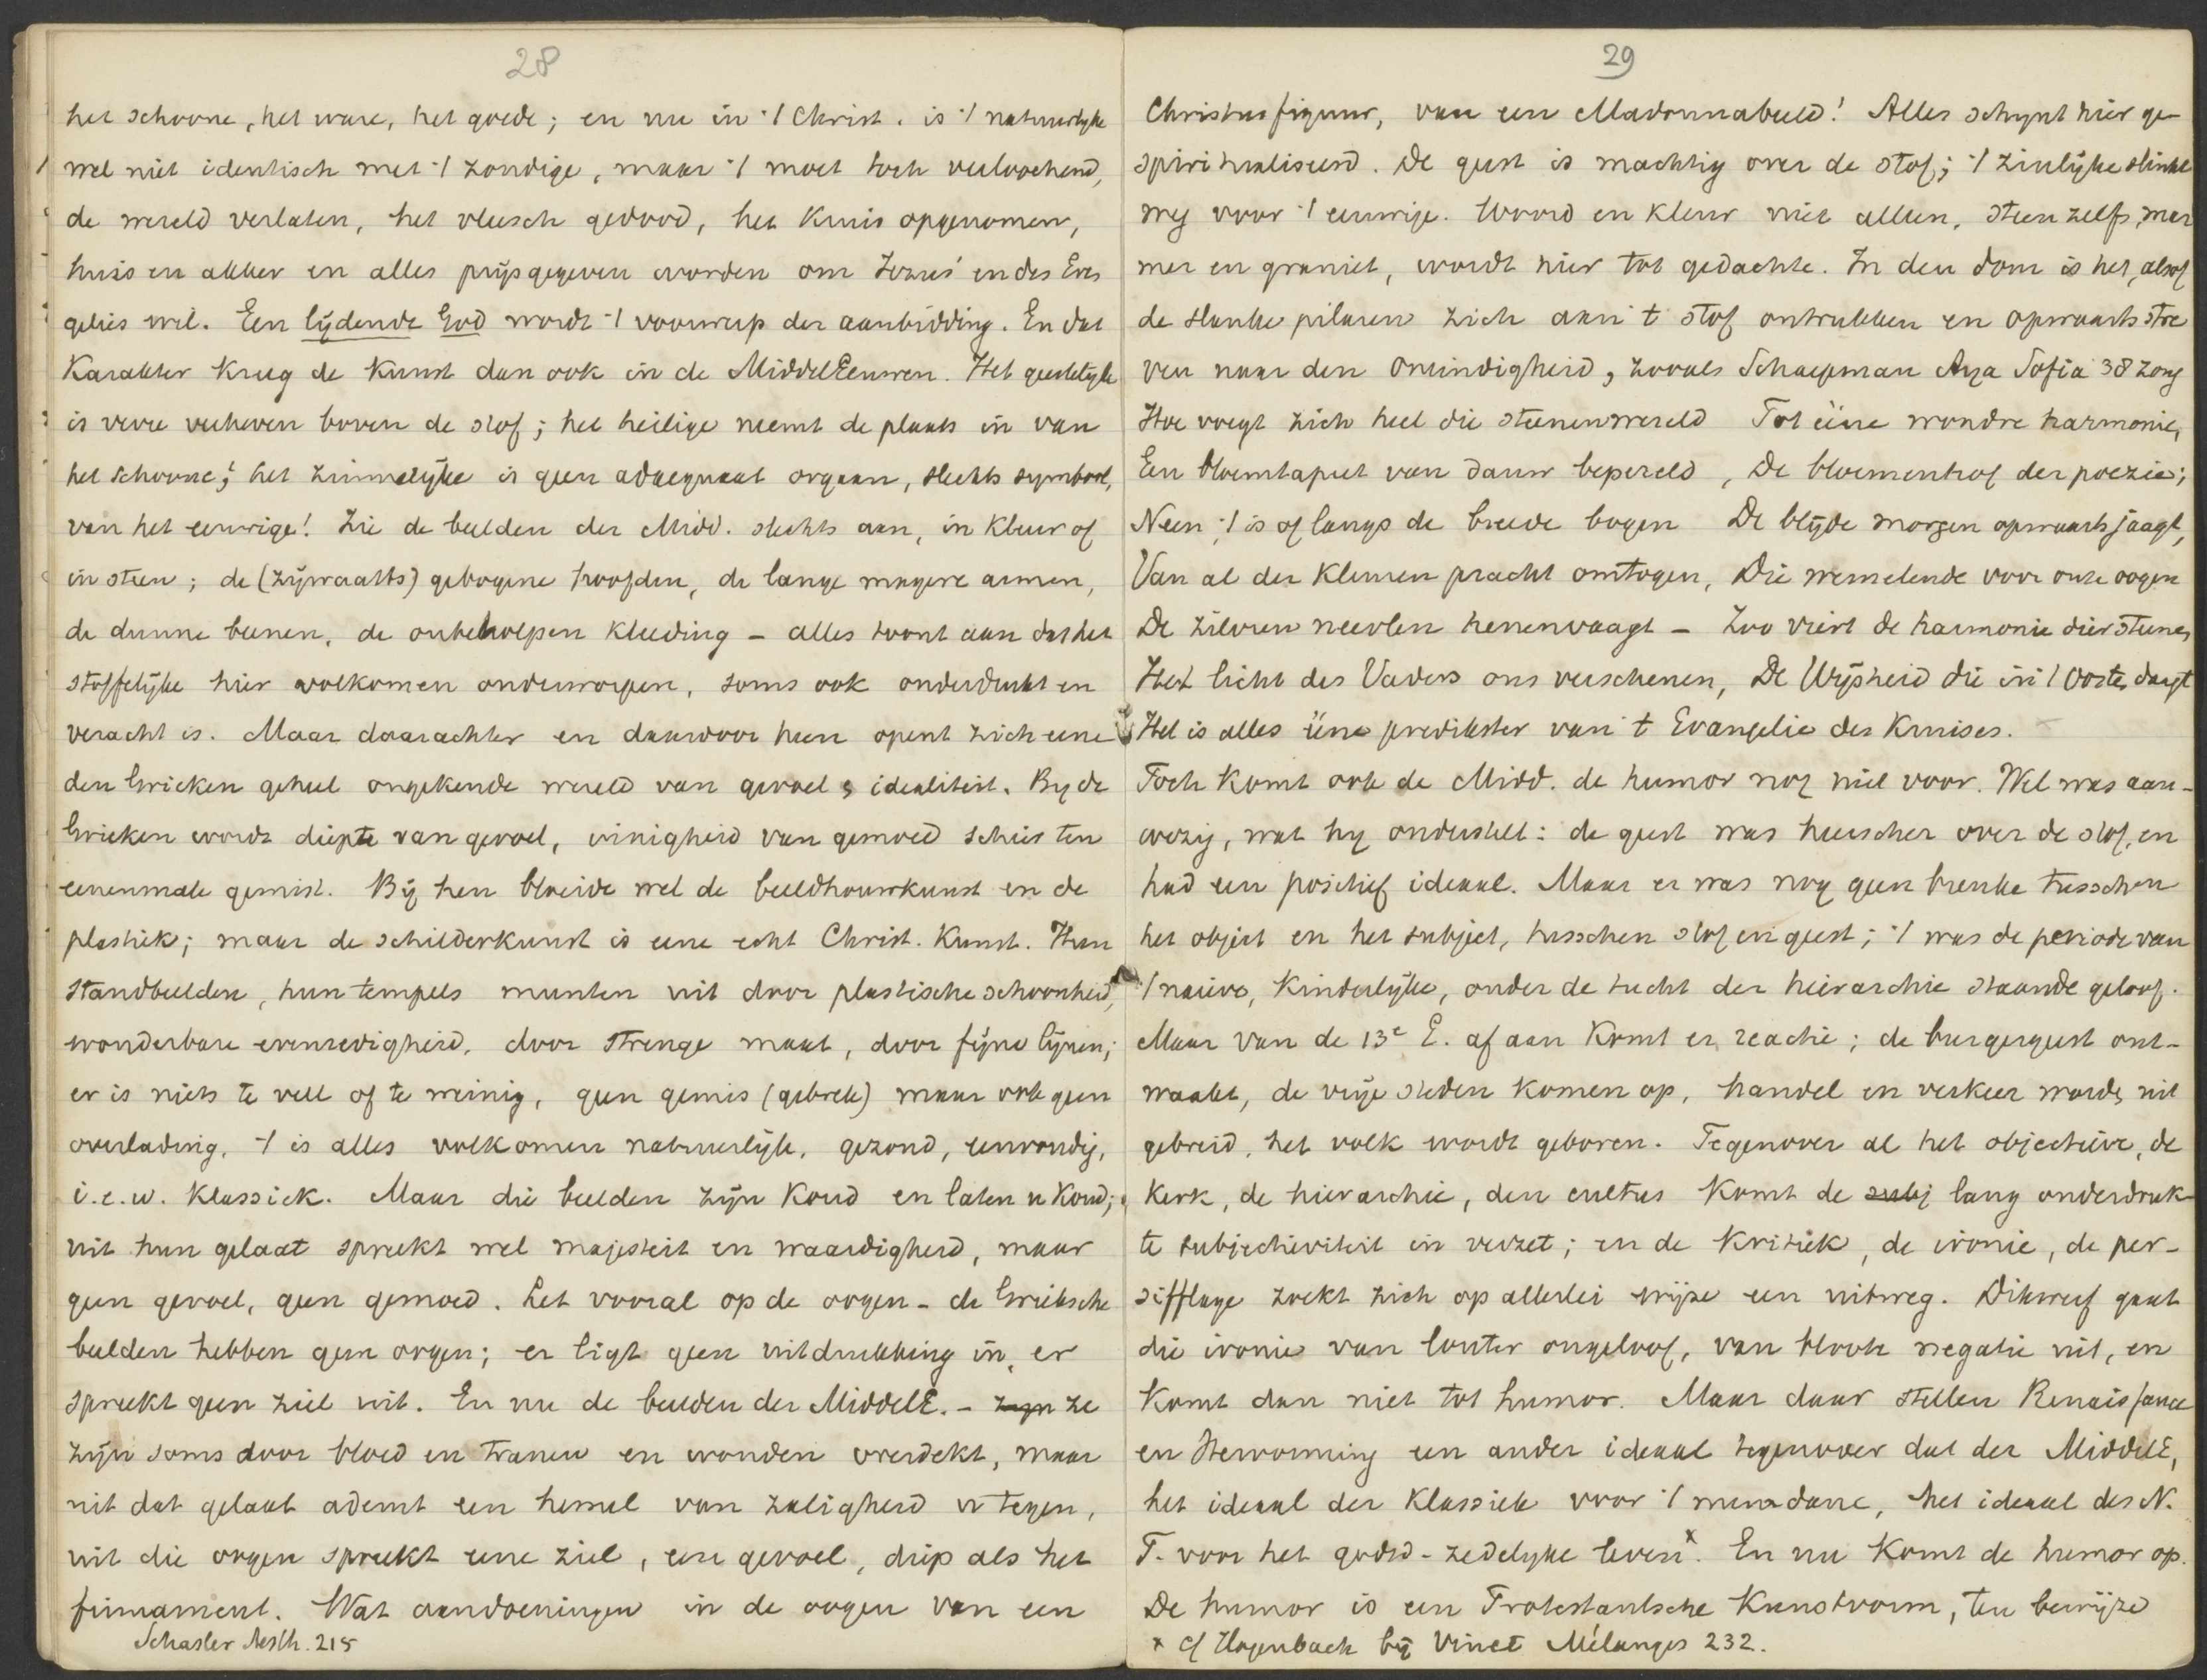 28
het schoone, het ware, het goede; en nu in 't Christ. is 't natuurlyke
wel niet identisch met 't zondige, maar 't moet toch verloochend,
de wereld verlaten, het vleesch gedood, het Kruis opgenomen,
huis en akker en alles prijsgegeven worden om Jezus' en des Evan
gelies wil. Een lijdende God wordt 't voorwerp der aanbidding. En dat
Karakter kreeg de Kunst dan ook in de MiddelEeuwen. Het geestelyke
is verre verheven boven de stof; het heilige neemt de plaats in van
het schoone; het zinnelijke is geen adaequaat orgaan, slechts symbool,
van het eeuwige! Zie de beelden der Midd. slechts aan, in kleur of
in steen; de (zijwaarts) gebogene hoofden, de lange magere armen,
de dunne beenen, de onbeholpen kleeding - alles toont aan dat het
stoffelijke hier volkomen onderworpen, soms ook onderdrukt en
veracht is. Maar daarachter en daardoor heen opent zich eene
den Grieken geheel ongekende wereld van gevoel & idealiteit. By de
Grieken wordt diepte van gevoel, innigheid van gemoed schier ten
eenenmale gemist. Bij hen bloeide wel de beeldhouwkunst en de
plastiek; maar de schilderkunst is eene echt Christ. Kunst. Hun
standbeelden, hun tempels munten uit door plastische schoonheid,
wonderbare evenredigheid, door strenge maat, door fijne lijnen;
er is niets te veel of te weinig, geen gemis (gebrek) maar ook geen
overlading, 't is alles volkomen natuurlijk, gezond, eenvoudig,
i.e.w. Klassiek. Maar die beelden zijn Koud en laten u Koud;
uit hun gelaat spreekt wel majesteit en waardigheid, maar
geen gevoel, geen gemoed. Let vooral op de oogen - de Grieksche
beelden hebben geen oogen; er ligt geen uitdrukking in, er
spreekt geen ziel uit. En nu de beelden der MiddelE. - zyn ze
zijn soms door bloed en tranen en wonden overdekt, maar
uit dat gelaat ademt een hemel van zaligheid u tegen,
uit die oogen spreekt eene ziel, een gevoel, diep als het
firmament. Wat aandoeningen in de oogen van een
Schasler Aesth. 215
29
Christusfiguur, van een Madonnabeeld! Alles schynt hier ge-
spiritualiseerd. De geest is machtig over de stof; 't zinlijke slinkt
weg voor 't eeuwige. Woord en kleur niet alleen, steen zelfs, mar
mer en graniet, wordt hier tot gedachte. In den dom is het, alsof
de slanke pilaren zich aan 't stof ontrukken en opwaarts stre
ven naar den oneindigheid, zooals Schaepman Aya Sofia 38 zong
Hoe voegt zich heel die steenenwereld Tot ééne wondre harmonie,
Een bloemtapeet van dauw bepereld, De bloemenhof der poezie;
Neen, 't is of langs de breede bogen De blijde morgen opwaarts jaagt,
Van al der kleuren pracht omtogen, Die wemelende voor onze oogen
De zilvren neevlen henenvaagt - Zoo viert de harmonie dier steenen
Het licht des Vaders ons verschenen, De Wijsheid die in 't Oosten daagt
Het is alles ééne predikster van 't Evangelie des Kruises.
Toch Komt ook de Midd. de humor nog niet voor. Wel was aan-
wezig, wat hy onderstelt: de geest was heerscher over de stof, en
had een positief ideaal. Maar er was nog geen breuke tusschen
het object en het subject, tusschen stof en geest; 't was de periode van
't naieve, Kinderlijke, onder de tucht der hierarchie staande geloof.
Maar van de 13e E. af aan Komt er reactie; de burgergeest ont-
waakt, de vrije steden komen op, handel en verkeer worden uit
gebreid, het volk wordt geboren. Tegenover al het objectieve, de
Kerk, de hierarchie, den cultus Komt de subj lang onderdruk-
te subjectiviteit in verzet; en de Kritiek, de ironie, de per-
sifflage zoekt zich op allerlei wijze een uitweg. Dikwerf gaat
die ironie van louter ongeloof, van bloote negatie uit, en
Komt dan niet tot humor. Maar daar stellen Renaissance
en Hervorming een ander ideaal tegenover dat der MiddelE,
het ideaal der Klassiek voor 't mundane, het ideaal des N.
T. voor het godsd-zedelyke leven x. En nu Komt de humor op.
De humor is een Protestantsche Kunstvorm, ten bewijze
x cf Hagenbach bij Vinet Mélanges 232.